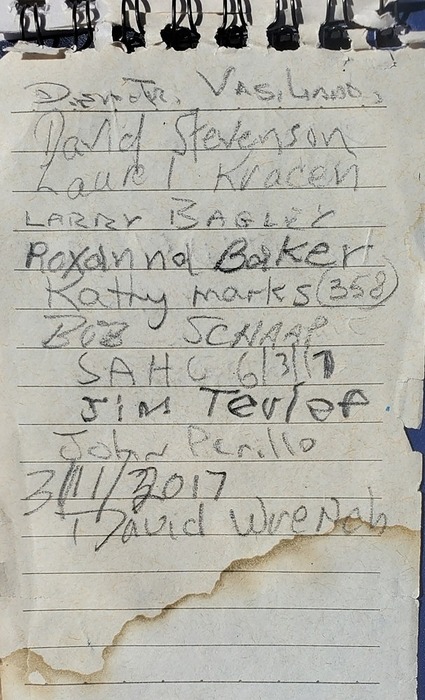 David Stevenson
Laurel Kracen
LARRY BAGLEY
Roxanna Baker
Kathy marks (358)
BOB SCHAAP
SAHC 6/3/17
JIM
John Perillo
3/11/2017
David Wrench